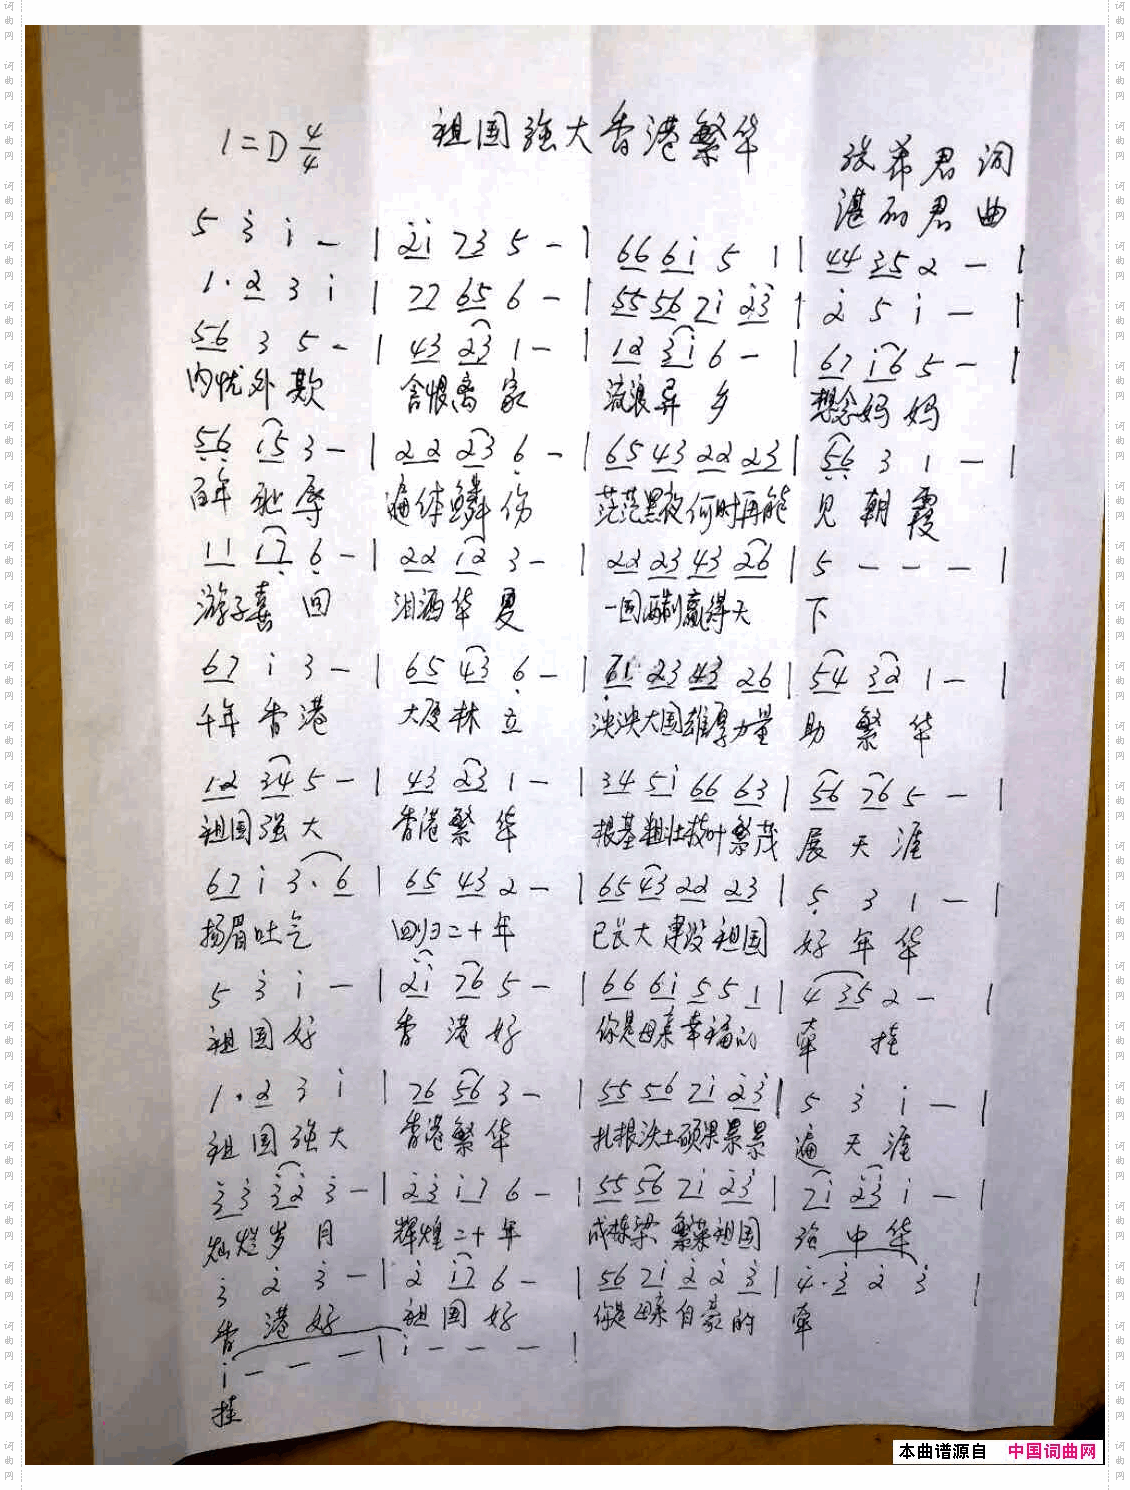 祖国强大香港繁华
1=D 4/4
张希君 词
湛 君 曲
5 3̇ i – | 2̇i 73 5 – | 66 6i 5 1 | 44 35 2 – |
1· 2 3 i | 77 65 6 – | 55 56 7i 2̇3̇ | 2̇ 5 i – |
56 3 5 – | 43 23 1 – | 12 3i 6 – | 67 i6 5 – |
内忧外欺 含恨离家 流浪异乡 想念妈妈
5̣6̣ 15 3 – | 22 23 6̣ – | 65 43 22 23 | 5̣6̣ 3 1 – |
百年耻辱 遍体鳞伤 茫茫黑夜何时再能 见朝霞
11 17̣ 6̣ – | 22 12 3 – | 22 23 43 26 | 5 – – – |
游子喜回 泪洒华夏 一国两制赢得天 下
67 i 3 – | 65 43 6̣ – | 6̣1 23 43 26 | 54 32 1 – |
千年香港 大厦林立 泱泱大国雄厚力量 助繁华
12 34 5 – | 43 23 1 – | 34 5i 66 63 | 56 76 5 – |
祖国强大 香港繁华 根基粗壮枝叶繁茂 展天涯
67 i 3· 6 | 65 43 2 – | 65 43 22 23 | 5̣ 3 1 – |
扬眉吐气 回归二十年 已长大建设祖国 好年华
5 3̇ i – | 2̇i 76 5 – | 66 6i 55 1 | 4 35 2 – |
祖国好 香港好 你是母亲幸福的 牵挂
1· 2 3 i | 76 56 3 – | 55 56 7i 2̇3̇ | 5 3̇ i – |
祖国强大 香港繁华 扎根沃土硕果累累 遍天涯
3̇3̇ 3̇2̇ 3̇ – | 2̇3̇ i7 6 – | 55 56 7i 2̇3̇ | 7i 2̇3̇ i – |
灿烂岁月 辉煌二十年 成栋梁 繁荣祖国 强中华
3̇ 2̇ 3̇ – | 2̇ i7 6 – | 56 7i 2̇ 2̇ 3̇ | 4̇· 3̇ 2̇ 3̇ |
香港好 祖国好 你是母亲自豪的 牵
i – – – | i – – – |
挂
本曲谱源自 中国词曲网